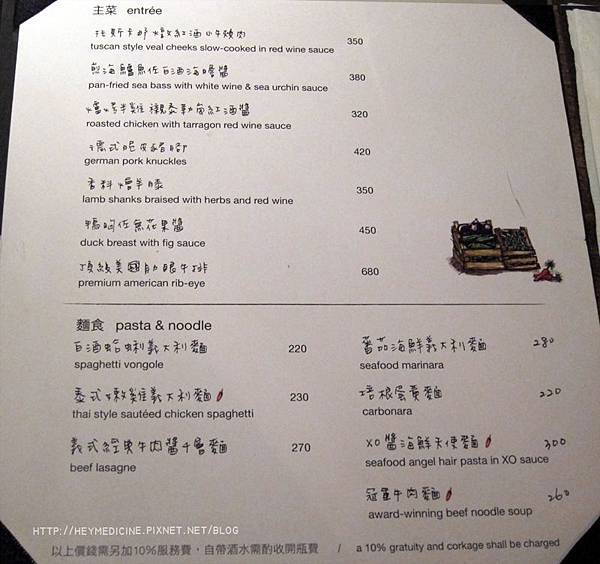 主菜 entrée
托斯卡那燉紅酒小牛頰肉
tuscan style veal cheeks slow-cooked in red wine sauce 350
煎海鱸魚佐白酒海膽醬
pan-fried sea bass with white wine & sea urchin sauce 380
爐烤半雞襯泰勒崗紅酒醬
roasted chicken with tarragon red wine sauce 320
德式脆皮豬腳
german pork knuckles 420
香料燴羊膝
lamb shanks braised with herbs and red wine 350
鴨胸佐無花果醬
duck breast with fig sauce 450
頂級美國肋眼牛排
premium american rib-eye 680
麵食 pasta & noodle
白酒蛤蜊義大利麵 220
spaghetti vongole
泰式嫩雞義大利麵 230
thai style sautéed chicken spaghetti
義式經典牛肉醬千層麵 270
beef lasagne
蕃茄海鮮義大利麵 280
seafood marinara
培根蛋麵 220
carbonara
XO醬海鮮天使麵 300
seafood angel hair pasta in XO sauce
冠軍牛肉麵 260
award-winning beef noodle soup
HTTP://HEYMEDICINE.PIXNET.NET/BLOG
以上價錢需另加10%服務費，自帶酒水需酌收開瓶費 / a 10% gratuity and corkage shall be charged